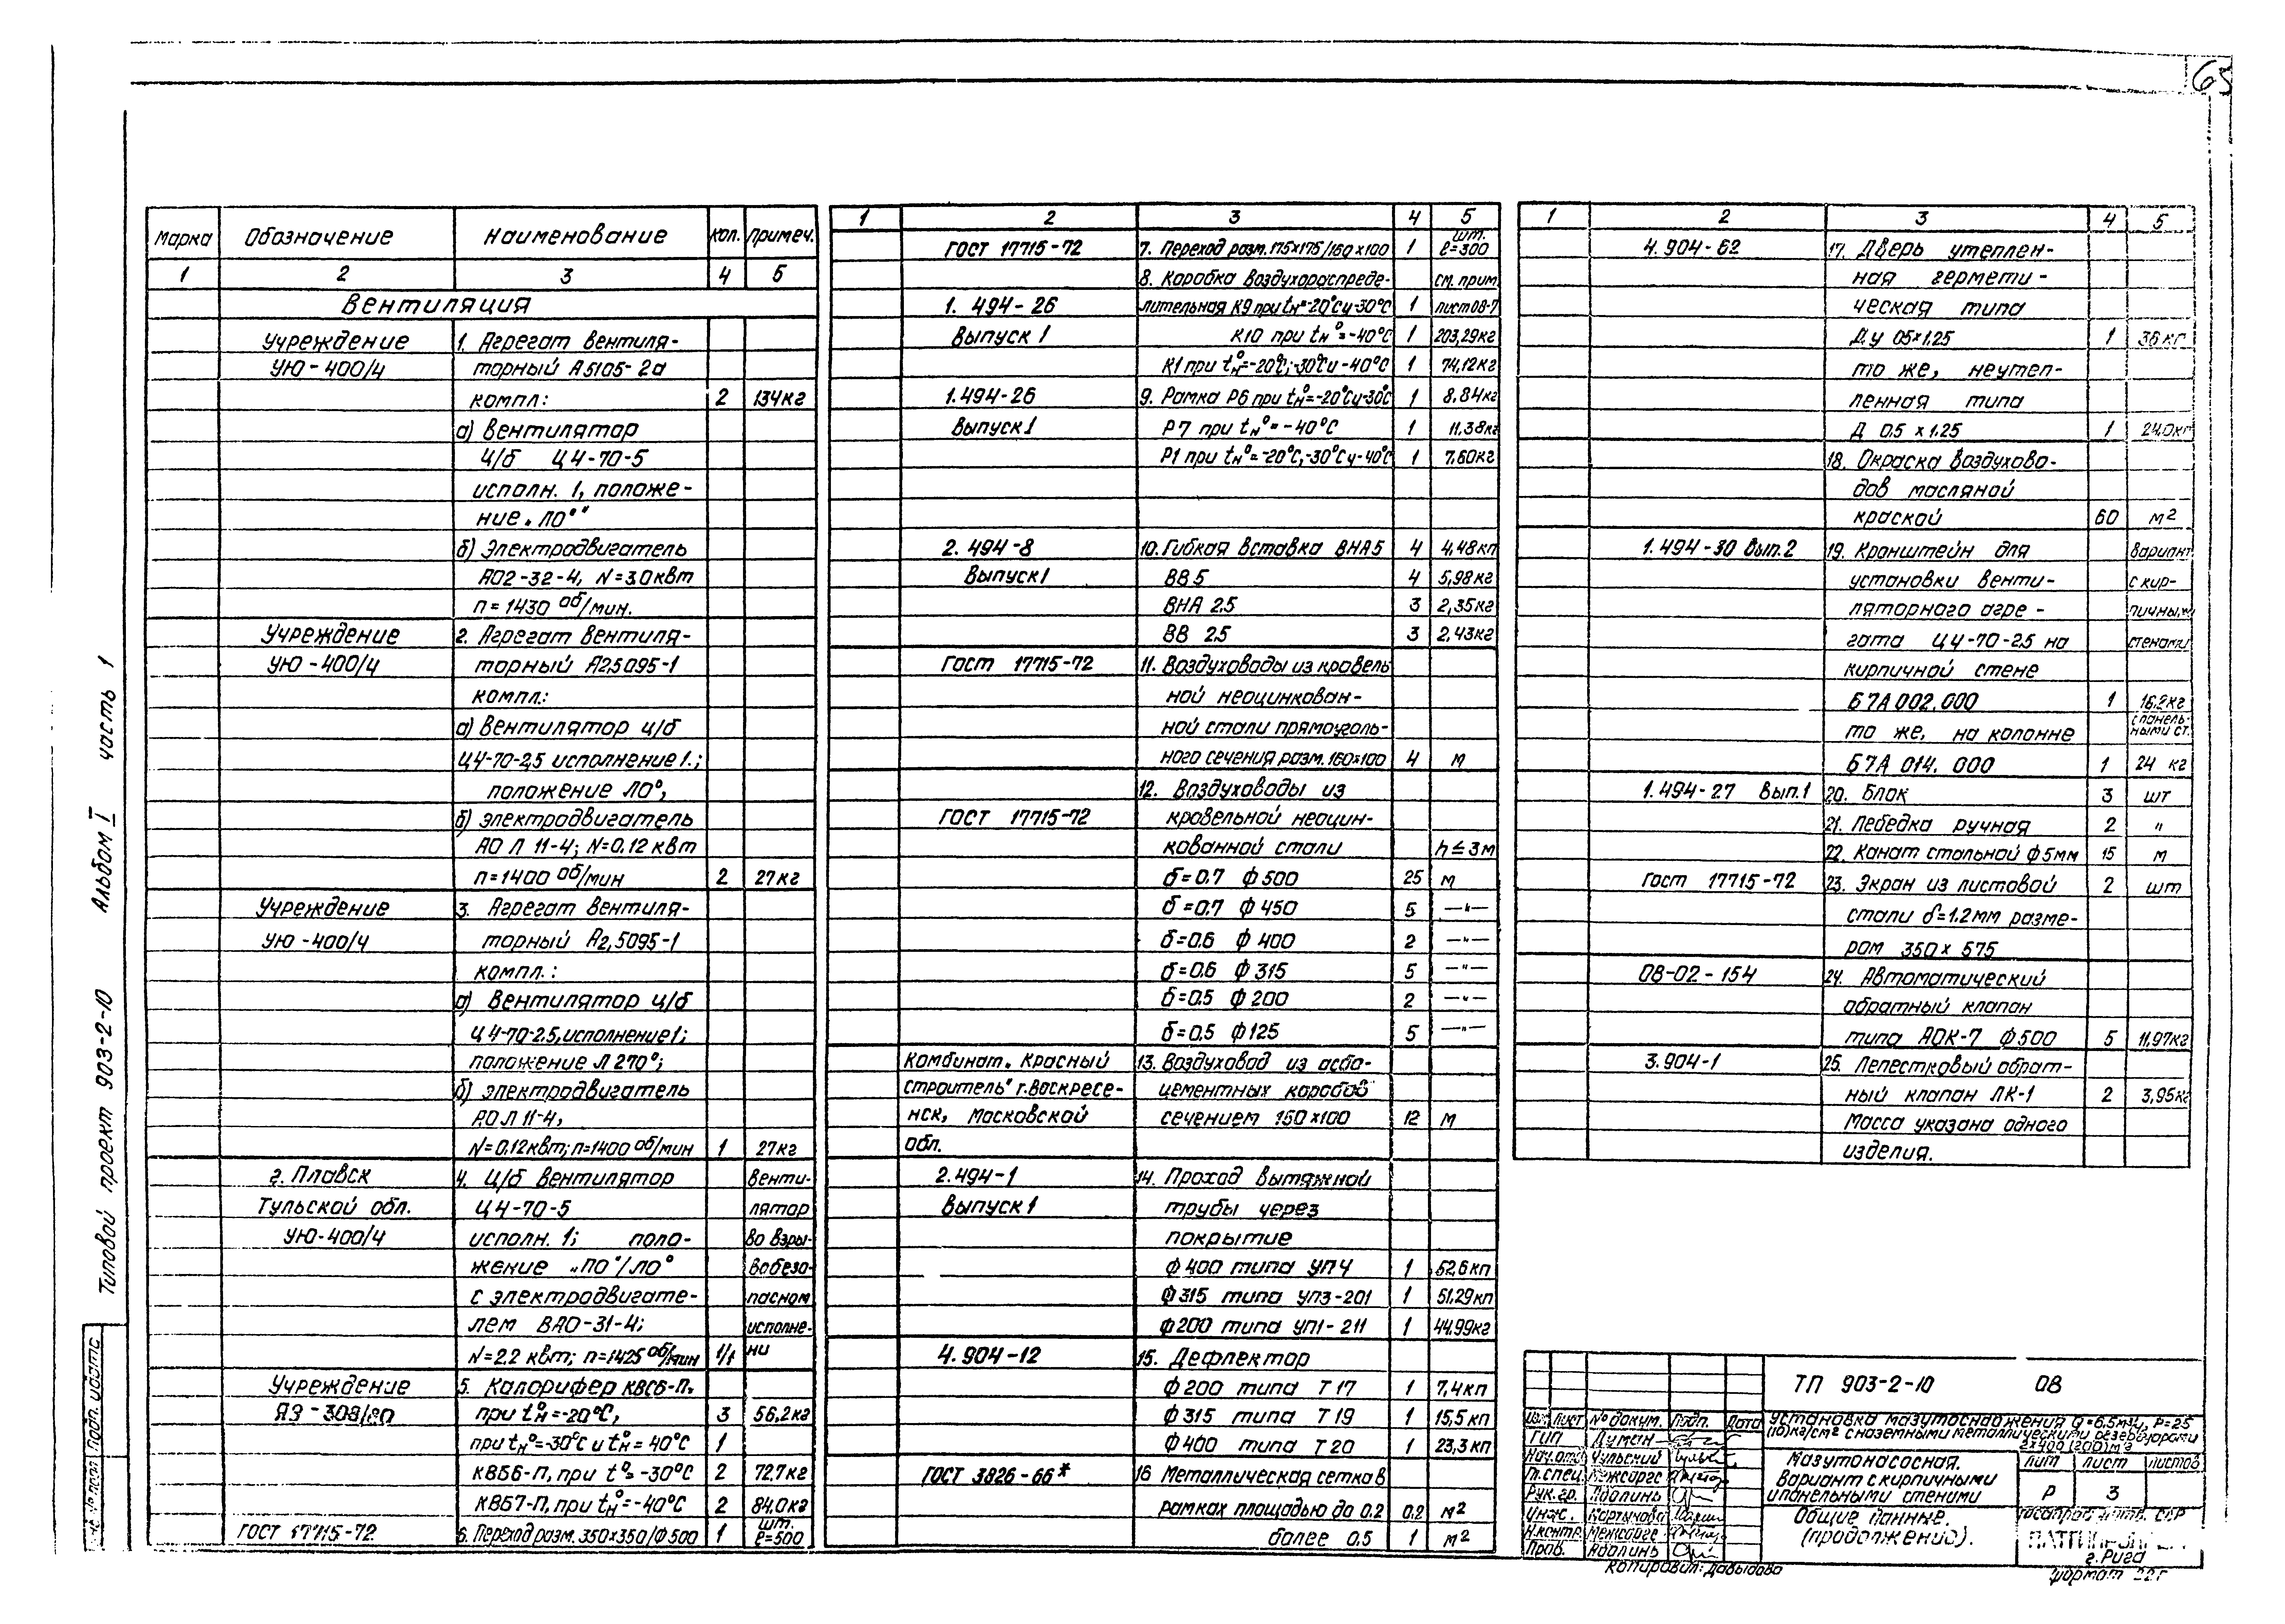 65
Марка Обозначение Наименование кол. примеч.
1 2 3 4 5
Вентиляция
Учреждение 1. Агрегат вентиля-
УЮ-400/4 торный А5105-2а
компл: 2 134кг
а) Вентилятор
ц/б Ц4-70-5
исполн. 1, положе-
ние „ЛО°"
б) Электродвигатель
АО2-32-4, N=3.0квт
n=1430 об/мин.
Учреждение 2. Агрегат вентиля-
УЮ-400/4 торный А2.5095-1
компл:
а) Вентилятор ц/б
Ц4-70-2,5 исполнение 1.;
положение ЛО°,
б) электродвигатель
АОЛ 11-4; N=0.12 квт
n=1400 об/мин 2 27кг
Учреждение 3. Агрегат вентиля-
УЮ-400/4 торный А2,5095-1
компл.:
а) Вентилятор ц/б
Ц4-70-2.5, исполнение 1;
положение Л 270°;
б) электродвигатель
АОЛ 11-4,
N=0.12квт; n=1400 об/мин 1 27кг
г. Плавск 4. Ц/б вентилятор Венти-
Тульской обл. Ц4-70-5 лятор
УЮ-400/4 исполн. 1; поло- во взры-
жение „ПО°/ЛО° вобезо-
с электродвигате- пасном
лем ВАО-31-4; исполне-
N=2.2 квт; n=1425 об/мин 1/1 нии
Учреждение 5. Калорифер КВС6-П.
ЯЭ-308/ при tн°=-20°С, 3 56,2кг
при tн°=-30°С и tн°=40°С 1
КВБ6-П, при t°=-30°С 2 72.7кг
КВБ7-П, при tн°=-40°С 2 84.0кг
ГОСТ 17715-72 6. Переход разм. 350х350/Ф500 1 шт. ℓ=500
1 2 3 4 5
ГОСТ 17715-72 7. Переход разм. 175х175/160х100 1 шт. ℓ=300
8. Коробка воздухораспреде- см. прим.
1. 494-26 лительная К9 при tн°=-20°С и -30°С 1 лист 08-7
Выпуск 1 К10 при tн°=-40°С 1 203,29кг
К1 при tн°=-20°С; -30°С и -40°С 1 74,12кг
1.494-26 9. Рамка Р6 при tн°=-20°С и -30°С 1 8.84кг
Выпуск 1 Р7 при tн°=-40°С 1 11.38кг
Р1 при tн°=-20°С, -30°С и -40°С 1 7.60кг
2. 494-8 10. Гибкая вставка ВНА5 4 4.48кг
Выпуск 1 ВВ5 4 5,98кг
ВНА 2.5 3 2,35кг
ВВ 2.5 3 2.43кг
ГОСТ 17715-72 11. Воздуховоды из кровель
ной неоцинкован-
ной стали прямоуголь-
ного сечения разм. 160х100 4 м
12. Воздуховоды из
ГОСТ 17715-72 кровельной неоцин-
кованной стали h≤3м
δ=0.7 Ф500 25 м
δ=0.7 Ф450 5 —"—
δ=0.6 Ф400 2 —"—
δ=0.6 Ф315 5 —"—
δ=0.5 Ф200 2 —"—
δ=0.5 Ф125 5 —"—
Комбинат „Красный 13. Воздуховод из асбо-
строитель" г. Воскресе- цементных коробов
нск, Московской сечением 150х100 12 м
обл.
2.494-1 14. Проход вытяжной
Выпуск 1 трубы через
покрытие
Ф400 типа УП4 1 52.6кг
Ф315 типа УП3-201 1 51.29кг
Ф200 типа УП1-211 1 44.99кг
4.904-12 15. Дефлектор
Ф200 типа Т17 1 7,4кг
Ф315 типа Т19 1 15,5кг
Ф400 типа Т20 1 23,3кг
ГОСТ 3826-66* 16 Металлическая сетка в
рамках площадью до 0.2 0.2 м2
более 0.5 1 м2
1 2 3 4 5
4.904-62 17. Дверь утеплен-
ная гермети-
ческая типа
Ду 05х1.25 1 36кг
то же, неутеп-
ленная типа
Д 0.5 х 1.25 1 24.0кг
18. Окраска воздухово-
дов масляной
краской 60 м2
1.494-30 Вып. 2 19. Кронштейн для Вариант
установки венти- с кир-
ляторного агре- пичными
гата Ц4-70-2.5 на стенами
кирпичной стене
Б7А 002.000 1 16.2кг
то же, на колонне с панель- ными ст.
Б7А 014.000 1 24 кг
1.494-27 Вып. 1 20. Блок 3 шт
21. Лебедка ручная 2 "
22. Канат стальной Ф5мм 15 м
ГОСТ 17715-72 23. Экран из листовой 2 шт
стали δ=1.2мм разме-
ром 350х575
08-02-154 24. Автоматический
обратный клапан
типа АОК-7 Ф500 5 11,97кг
3.904-1 25. Лепестковый обрат-
ный клапан ЛК-1 2 3,95кг
Масса указана одного
изделия.
Типовой проект 903-2-10 Альбом I часть 1
ТП 903-2-10 08
лист № докум. Подп. Дата
Установка мазутоснабжения Q=6.5м3/ч, Р=25
кг/см2 с наземными металлическими резервуарами
2х400 (200) м3
ГИП Думен
Рук. гр. Адолинь
Н.контр.
Пров. Адолинь
Мазутонасосная.
Вариант с кирпичными
и панельными стенами
лит лист листов
Р 3
Общие данные.
(продолжение).
г. Рига
Копировал: Давыдова
формат 22г